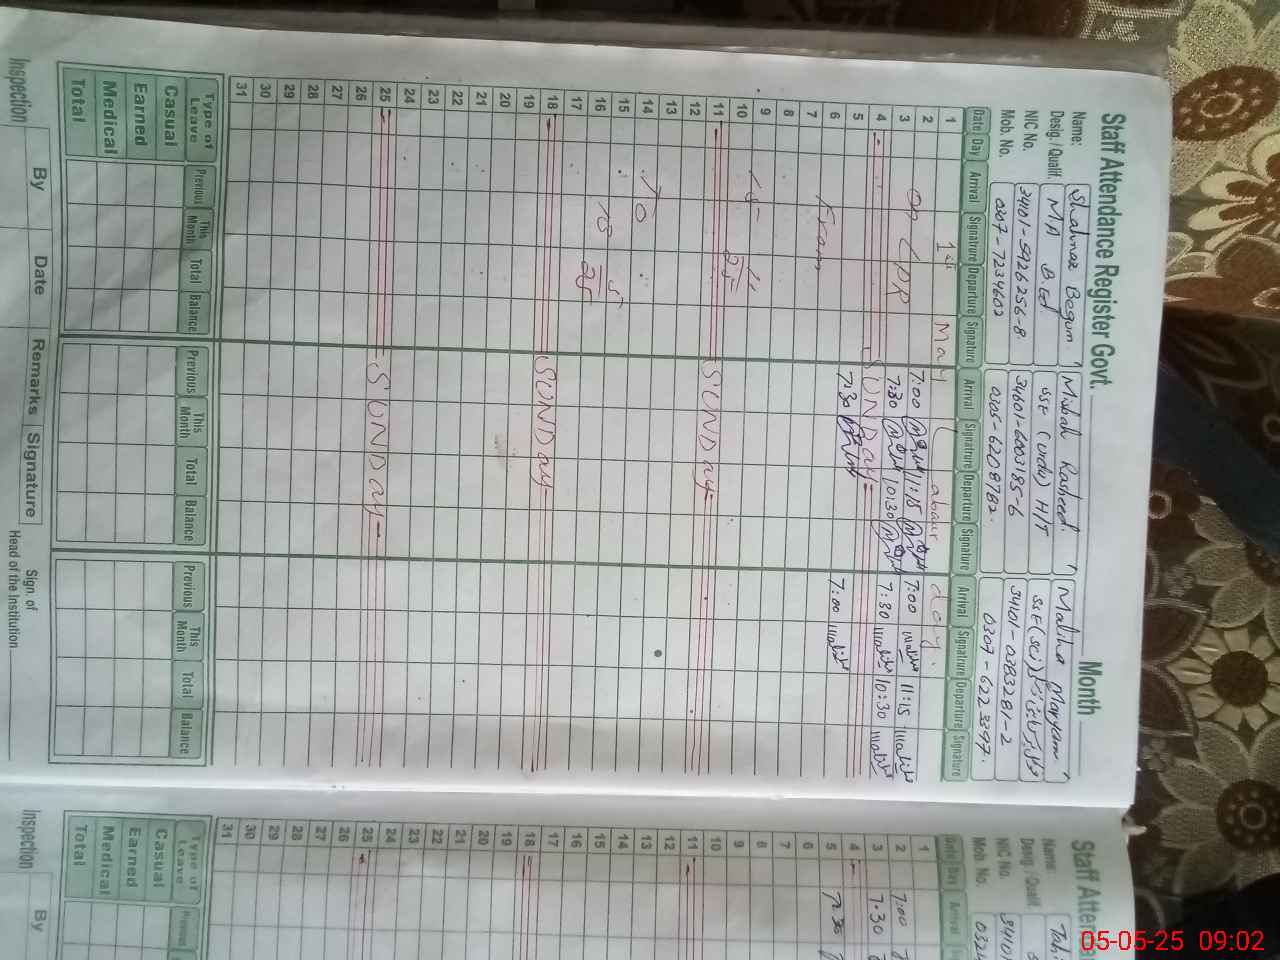 Staff Attendance Register Govt. Month
Name: Shahnaz Begum Misbah Rasheed. Maliha Maryam.
Desig. / Qualif. MA B.Ed SSE (urdu) H/T SSE(Sci)
NIC No. 34101-5926256-8 34601-6003185-6 34101-0383281-2
Mob. No. 0307-7234602 0305-6208782. 0307-6223397.
Date Day Arrival Signatrure Departure Signature Arrival Signatrure Departure Signature Arrival Signatrure Departure Signature
1 1st May Labour day.
2 7:00 11:15 7:00 Maliha 11:15 Maliha
3 7:30 10:30 7:30 Maliha 10:30 Maliha
4 SUNDay
5 7:30 7:00 Maliha
6 Exam
7
8
9
10
11 SUNDay
12
13
14
15
16
17
18 SUNDay
19
20
21
22
23
24
25 SUNDay
26
27
28
29
30
31
Type of Leave Previous This Month Total Balance Previous This Month Total Balance Previous This Month Total Balance
Casual
Earned
Medical
Total
Inspection By Date Remarks Signature Sign. of Head of the Institution
Staff Atten
Name:
Desig. / Qualif.
NIC No. 34101
Mob. No.
Date Day Arrival
1
2 7:00
3 7.30
4
5 7.30
6
7
8
9
10
11
12
13
14
15
16
17
18
19
20
21
22
23
24
25
26
27
28
29
30
31
Type of Leave Previous
Casual
Earned
Medical
Total
Inspection By
05-05-25 09:02